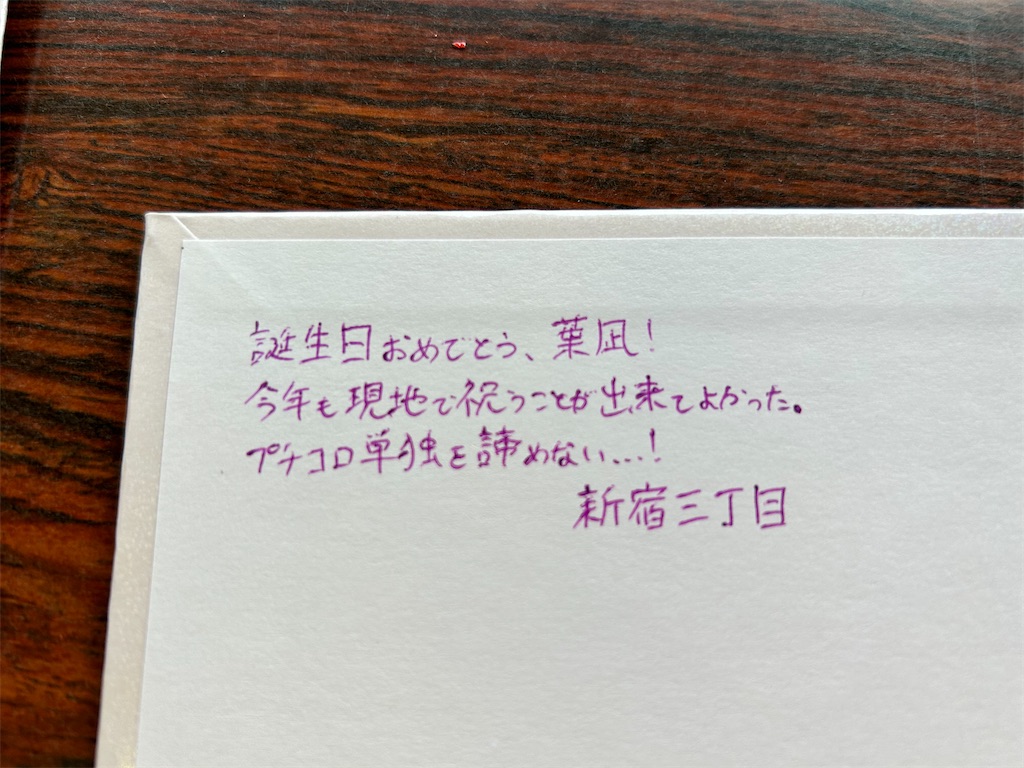 誕生日おめでとう、葉凪!
今年も現地で祝うことが出来てよかった。
プチコロ単独を諦めない...!
新宿三丁目